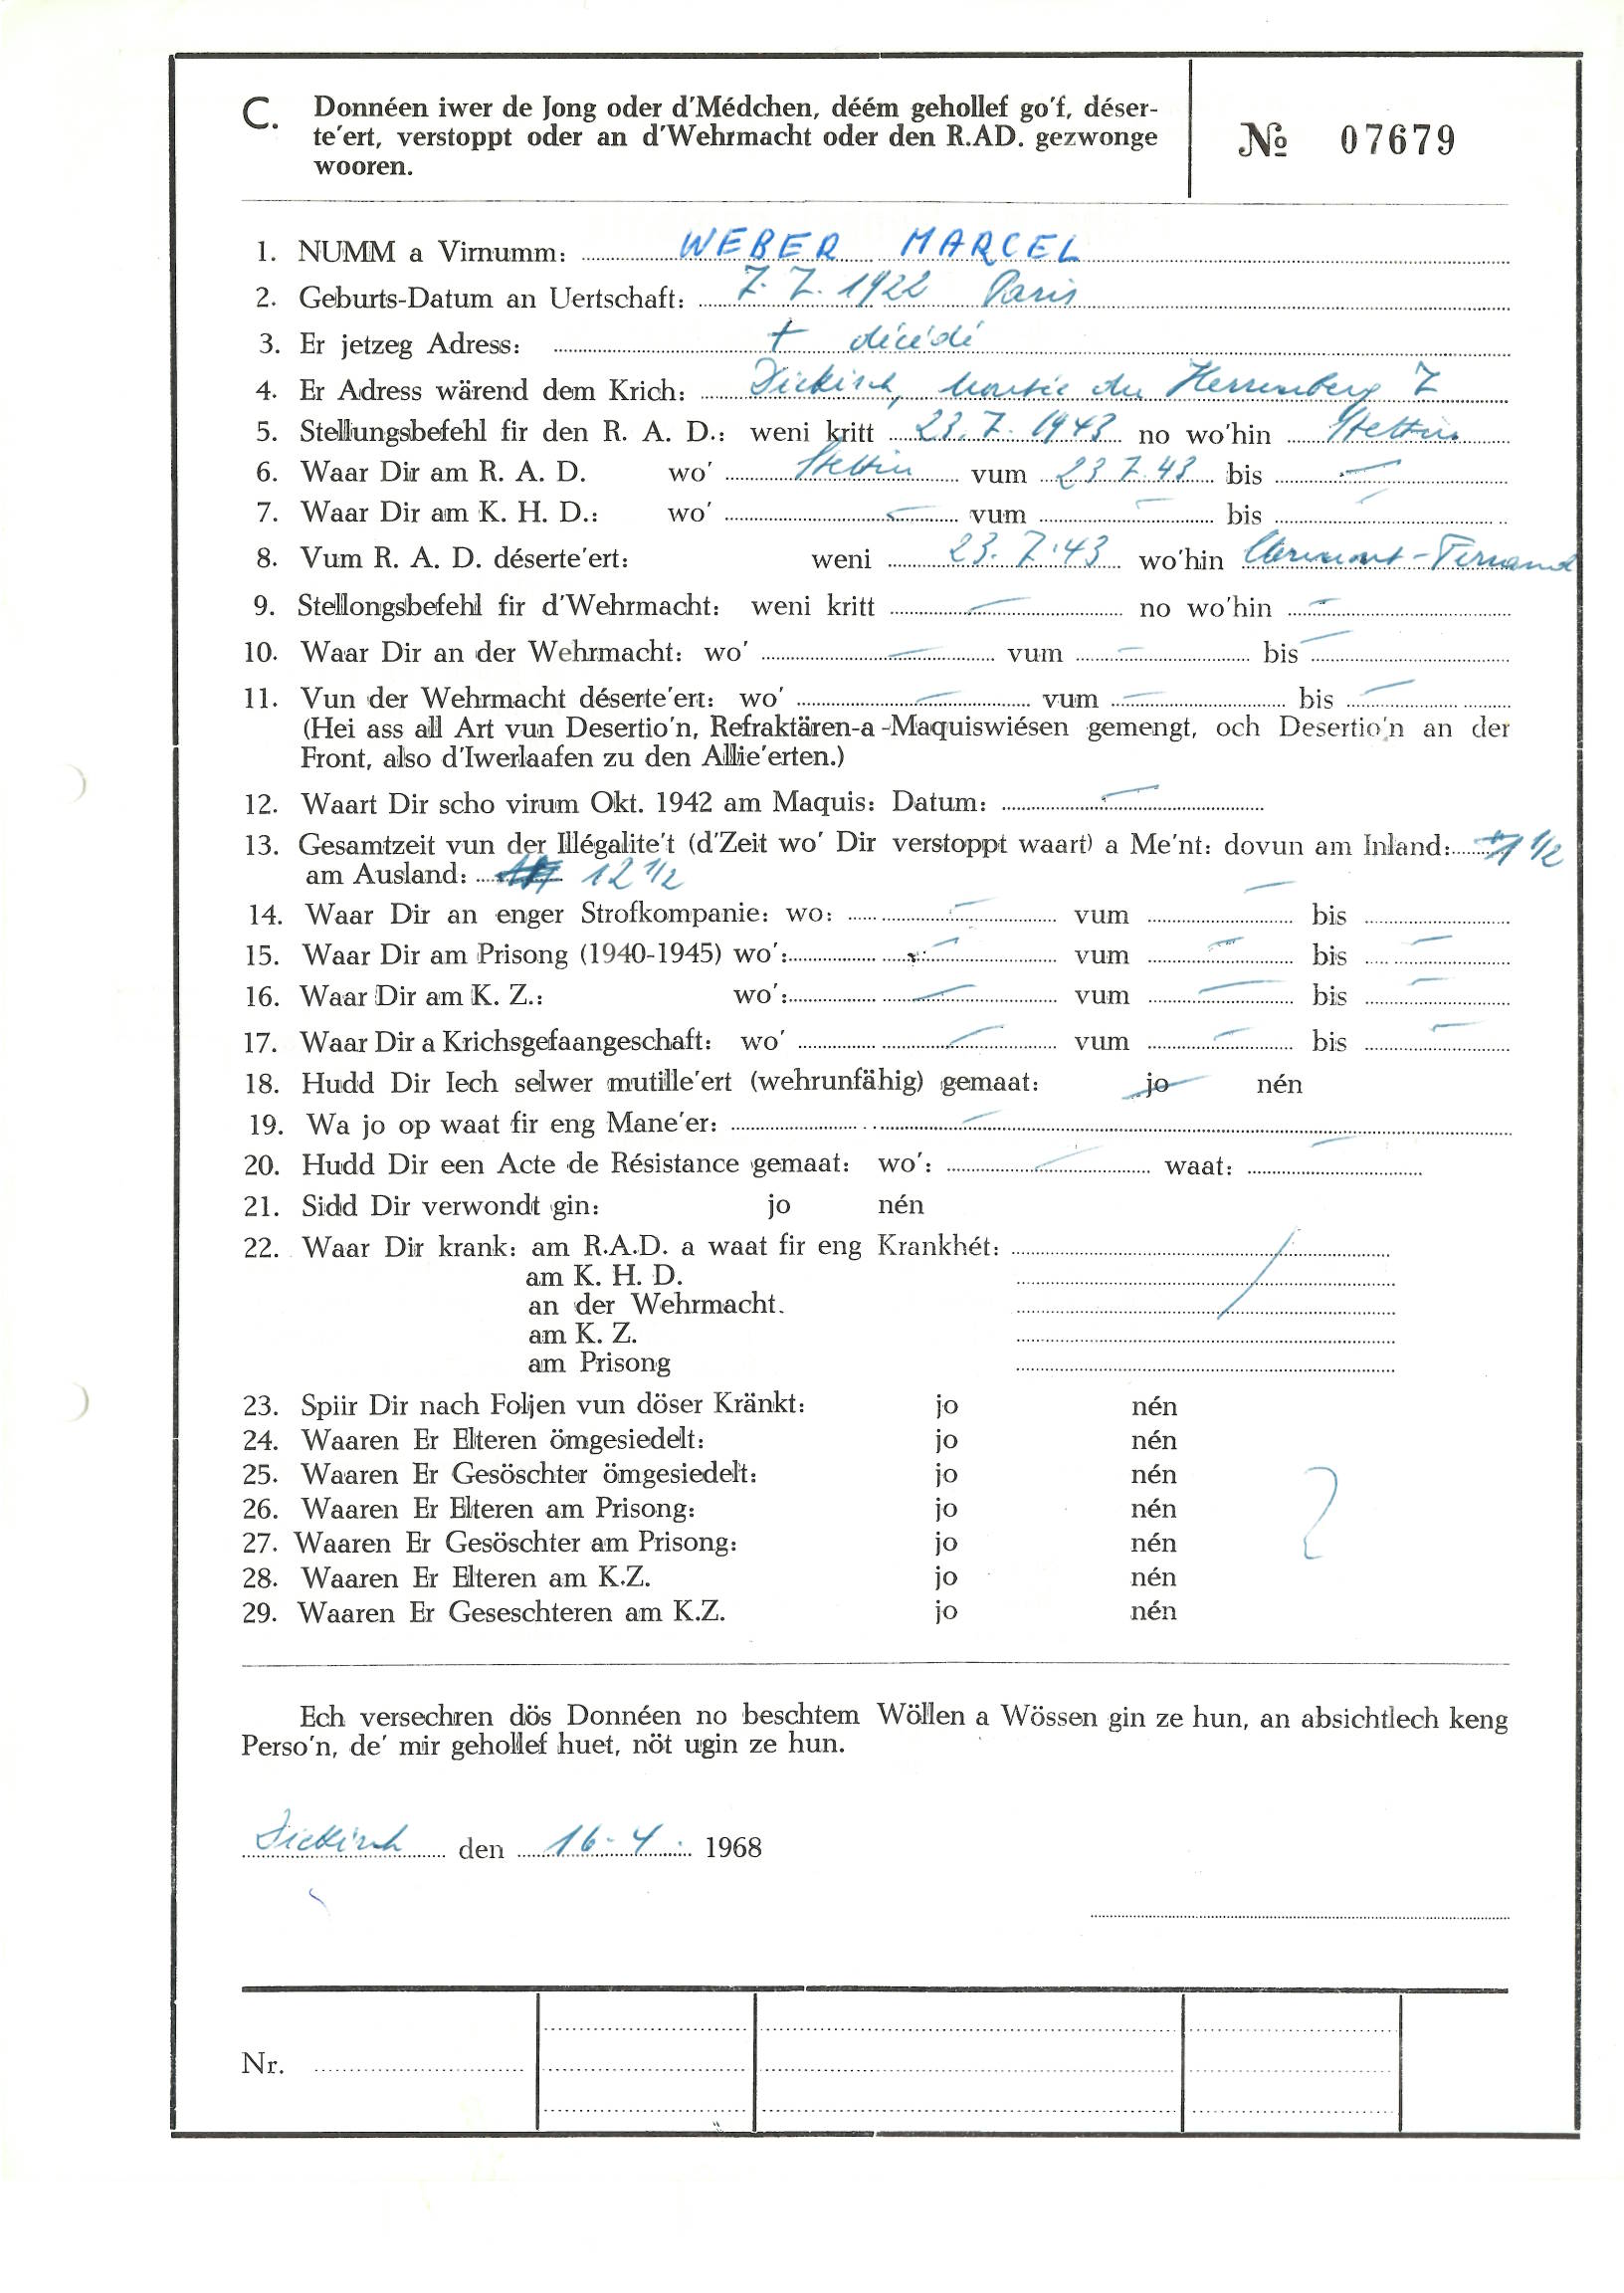 C. Donnéen iwer de Jong oder d'Médchen, déém gehollef go'f, déser-
te'ert, verstoppt oder an d'Wehrmacht oder den R.AD. gezwonge
wooren.
№ 07679
1. NUMM a Virnumm: WEBER MARCEL
2. Geburts-Datum an Uertschaft: 7. 7. 1922 Paris
3. Er jetzeg Adress: † décédé
4. Er Adress wärend dem Krich: Diekirch, Montée du Herrenberg 7
5. Stellungsbefehl fir den R. A. D.: weni kritt 23. 7. 1943 no wo'hin Stettin
6. Waar Dir am R. A. D. wo' Stettin vum 23 7. 43 bis —
7. Waar Dir am K. H. D.: wo' — vum — bis —
8. Vum R. A. D. déserte'ert: weni 23. 7. 43 wo'hin Clermont-Ferrand
9. Stellongsbefehl fir d'Wehrmacht: weni kritt — no wo'hin —
10. Waar Dir an der Wehrmacht: wo' — vum — bis —
11. Vun der Wehrmacht déserte'ert: wo' — vum — bis —
(Hei ass all Art vun Desertio'n, Refraktären-a -Maquiswiésen gemengt, och Desertio'n an der
Front, also d'Iwerlaafen zu den Allie'erten.)
12. Waart Dir scho virum Okt. 1942 am Maquis: Datum: —
13. Gesamtzeit vun der Illégalite't (d'Zeit wo' Dir verstoppt waart) a Me'nt: dovun am Inland: 1 1/2
am Ausland: 12 1/2
14. Waar Dir an enger Strofkompanie: wo: — vum — bis
15. Waar Dir am Prisong (1940-1945) wo': — vum — bis —
16. Waar Dir am K. Z.: wo': — vum — bis —
17. Waar Dir a Krichsgefaangeschaft: wo' — vum — bis —
18. Hudd Dir Iech selwer mutille'ert (wehrunfähig) gemaat: jo nén
19. Wa jo op waat fir eng Mane'er: —
20. Hudd Dir een Acte de Résistance gemaat: wo': — waat: —
21. Sidd Dir verwondt gin: jo nén
22. Waar Dir krank: am R.A.D. a waat fir eng Krankhét:
am K. H. D.
an der Wehrmacht.
am K. Z.
am Prisong
23. Spiir Dir nach Foljen vun döser Kränkt: jo nén
24. Waaren Er Elteren ömgesiedelt: jo nén
25. Waaren Er Gesöschter ömgesiedelt: jo nén
26. Waaren Er Elteren am Prisong: jo nén
27. Waaren Er Gesöschter am Prisong: jo nén
28. Waaren Er Elteren am K.Z. jo nén
29. Waaren Er Geseschteren am K.Z. jo nén
Ech versechren dös Donnéen no beschtem Wöllen a Wössen gin ze hun, an absichtlech keng
Perso'n, de' mir gehollef huet, nöt ugin ze hun.
Diekirch den 16. 4. 1968
Nr.